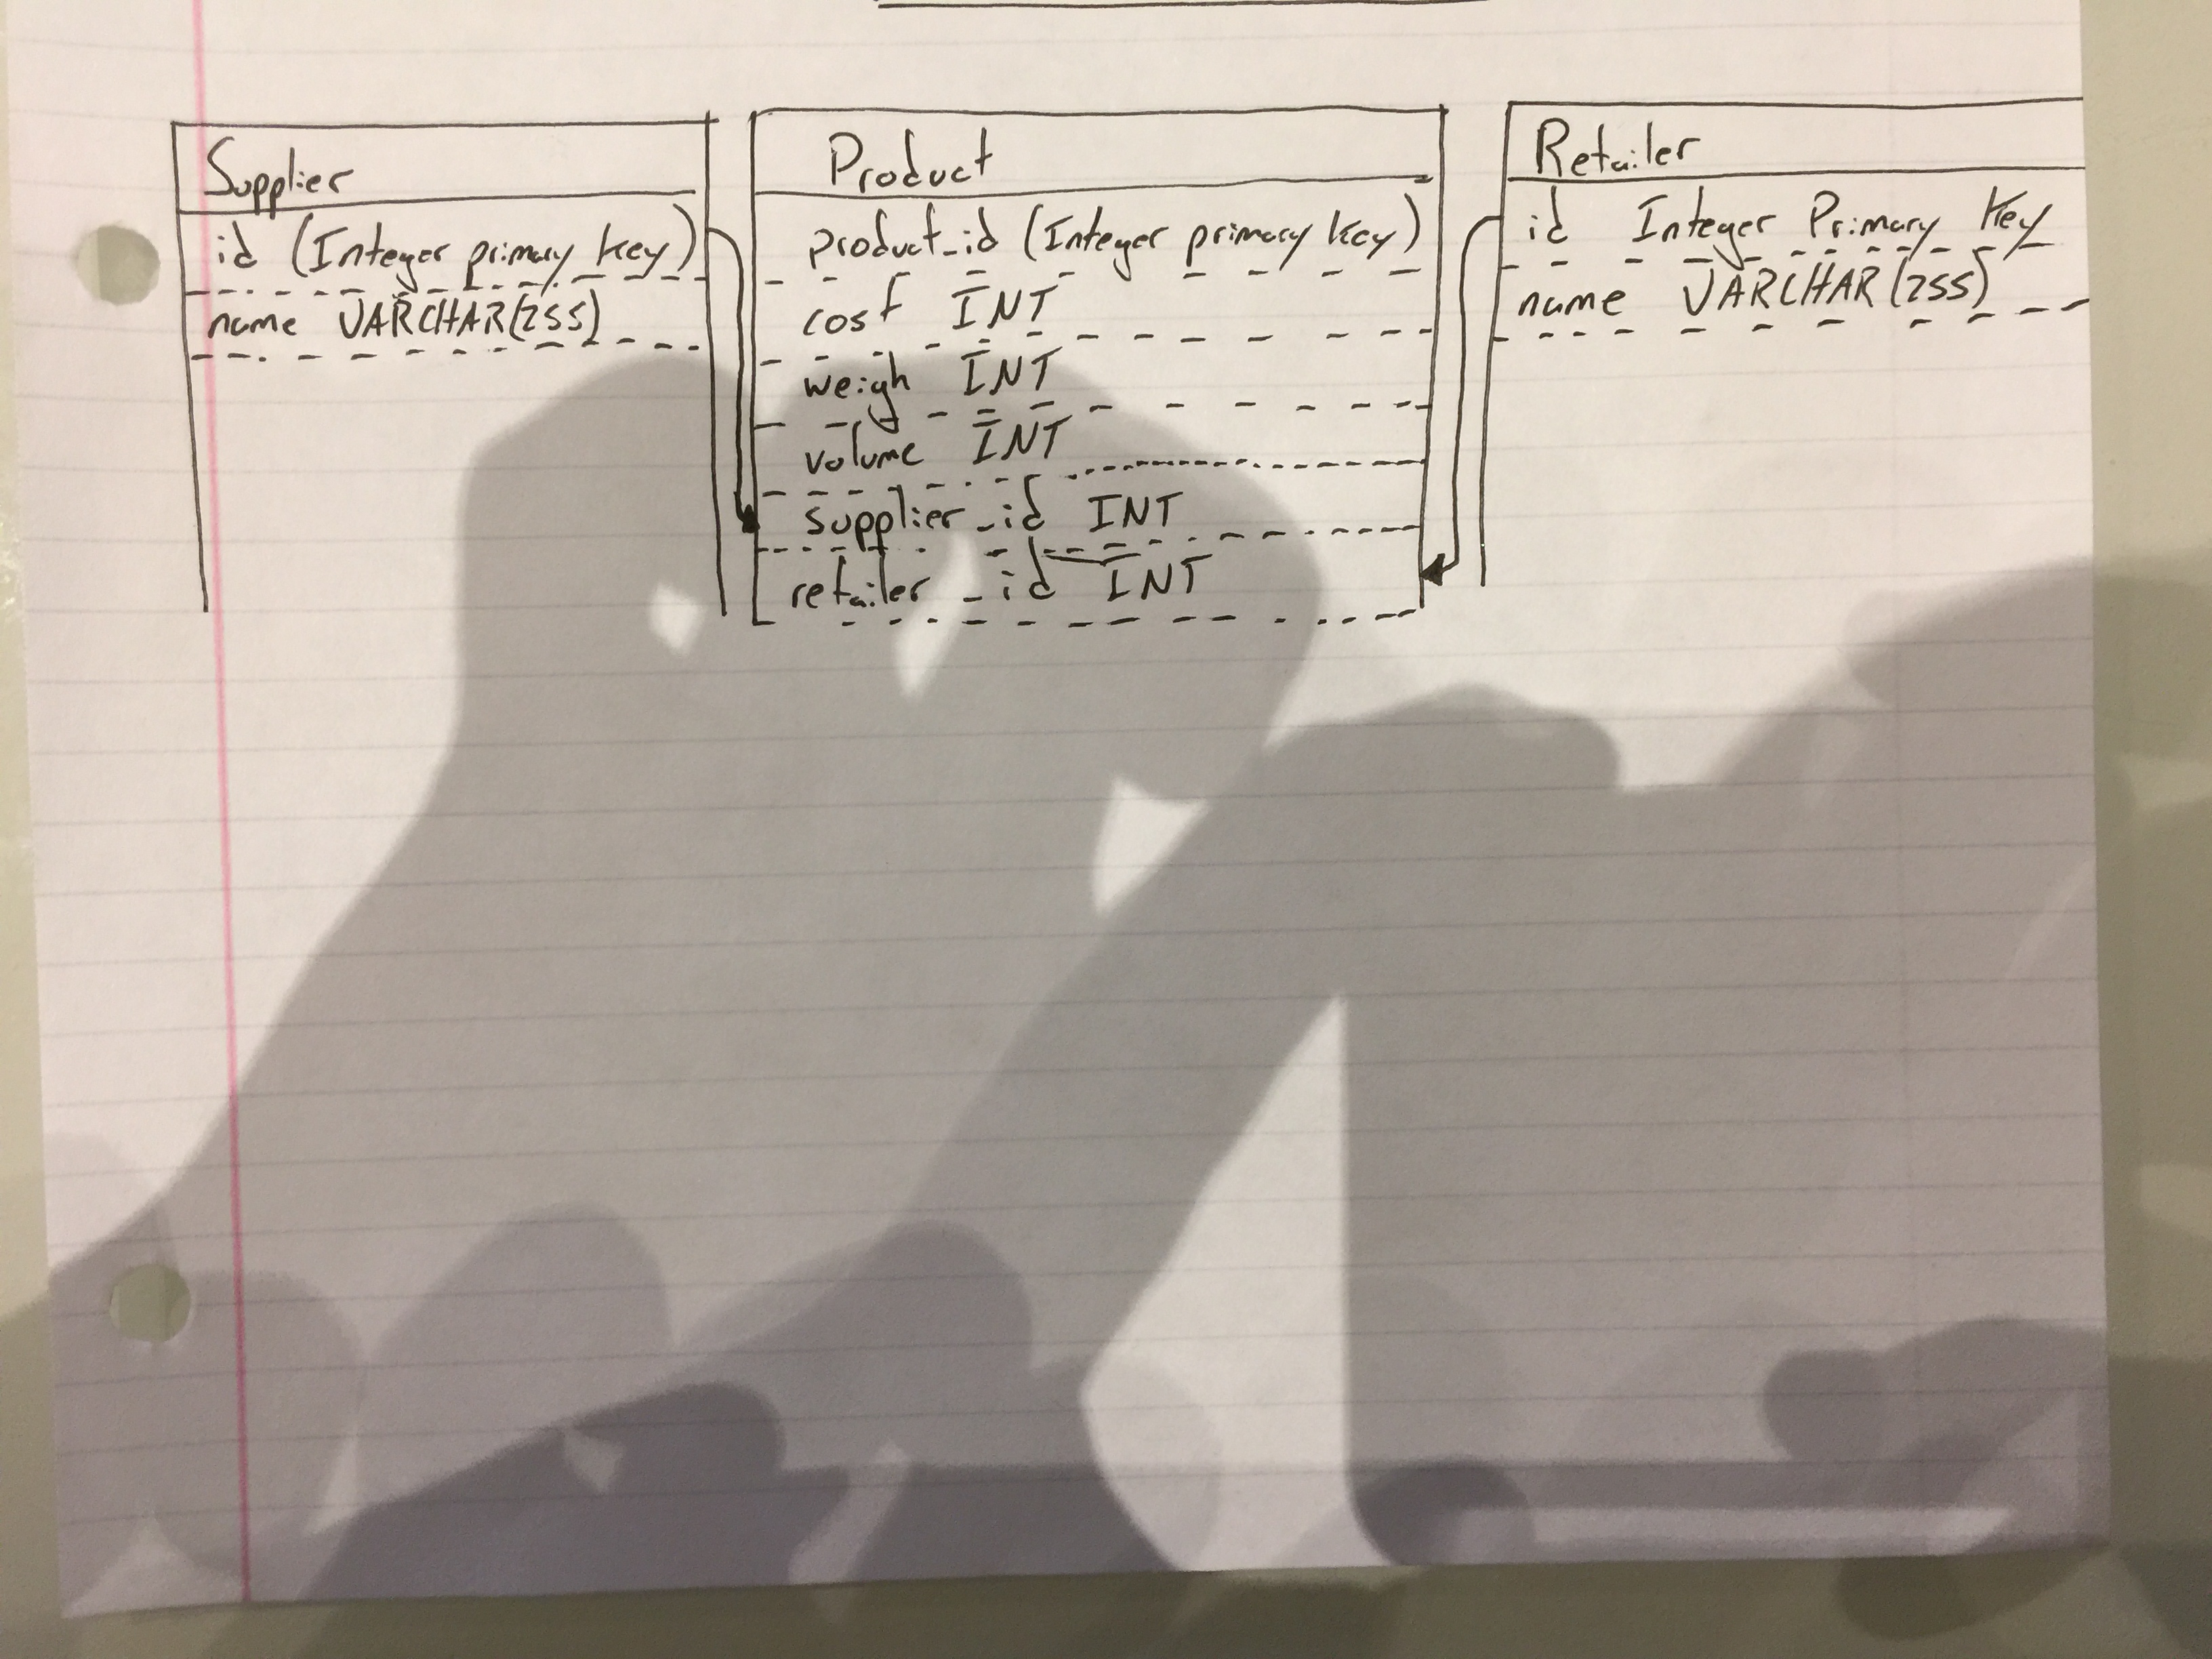 Supplier
id (Integer primary key)
name VARCHAR(255)
Product
product_id (Integer primary key)
cost INT
weigh INT
volume INT
supplier_id INT
retailer_id INT
Retailer
id Integer Primary Key
name VARCHAR(255)